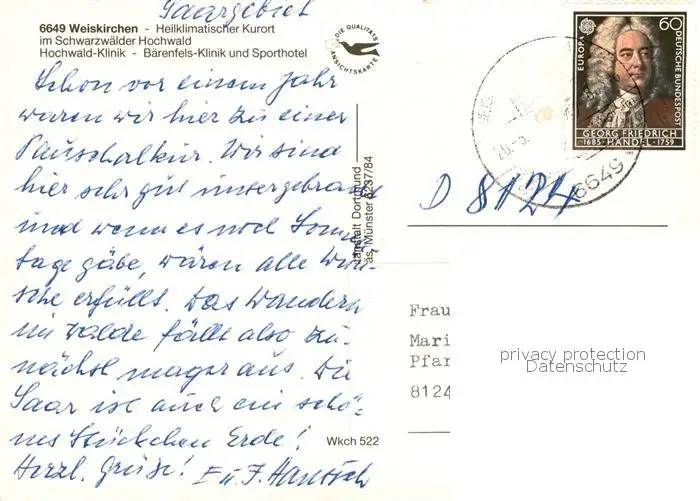 Saargebiet
6649 Weiskirchen - Heilklimatischer Kurort
im Schwarzwälder Hochwald
Hochwald-Klinik - Bärenfels-Klinik und Sporthotel
DIE QUALITÄTS
ANSICHTSKARTE
Schon vor einem Jahr
waren wir hier zu einer
Pauschalkur. Wir sind
hier sehr gut untergebracht
und wenn es noch Sonn-
tage gäbe, wären alle Wün-
sche erfüllt. Das Wandern
im Walde fällt also zu-
nächst mager aus. Die
Saar ist auch ein schö-
nes Stückchen Erde!
Herzl. Grüße! E u. F.
Wkch 522
anstalt Dortmund
Münster 6237/84
EUROPA
60
DEUTSCHE BUNDESPOST
GEORG FRIEDRICH
1685 HÄNDEL 1759
6649
D 8124
Frau
Mari
Pfar
8124
privacy protection
Datenschutz